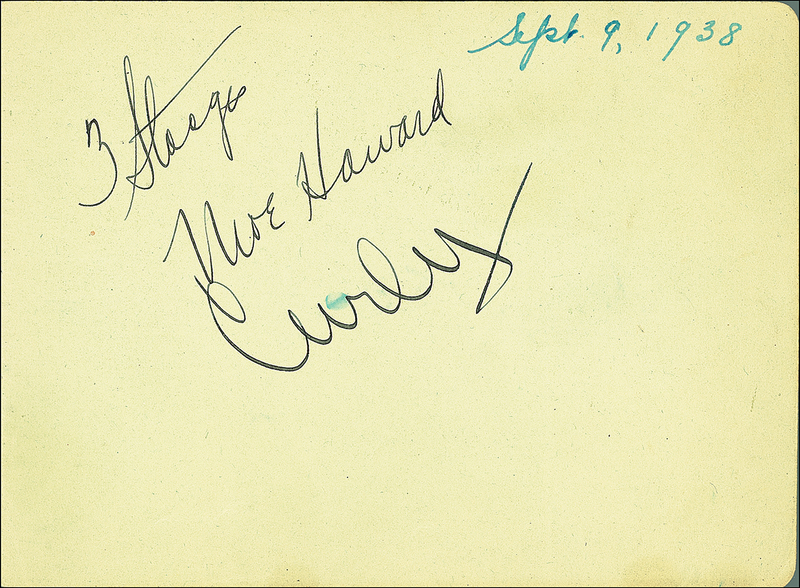 Sept. 9, 1938
3 Stooges
Moe Howard
Curly